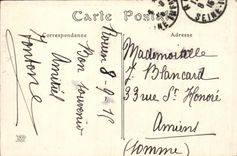 Carte Postale
Correspondance
SEINE-INF
Rouen 8-9-16
Bon souvenir
Amitiés
Mademoiselle
J Blancard
33 rue St Honoré
Amiens
(Somme)